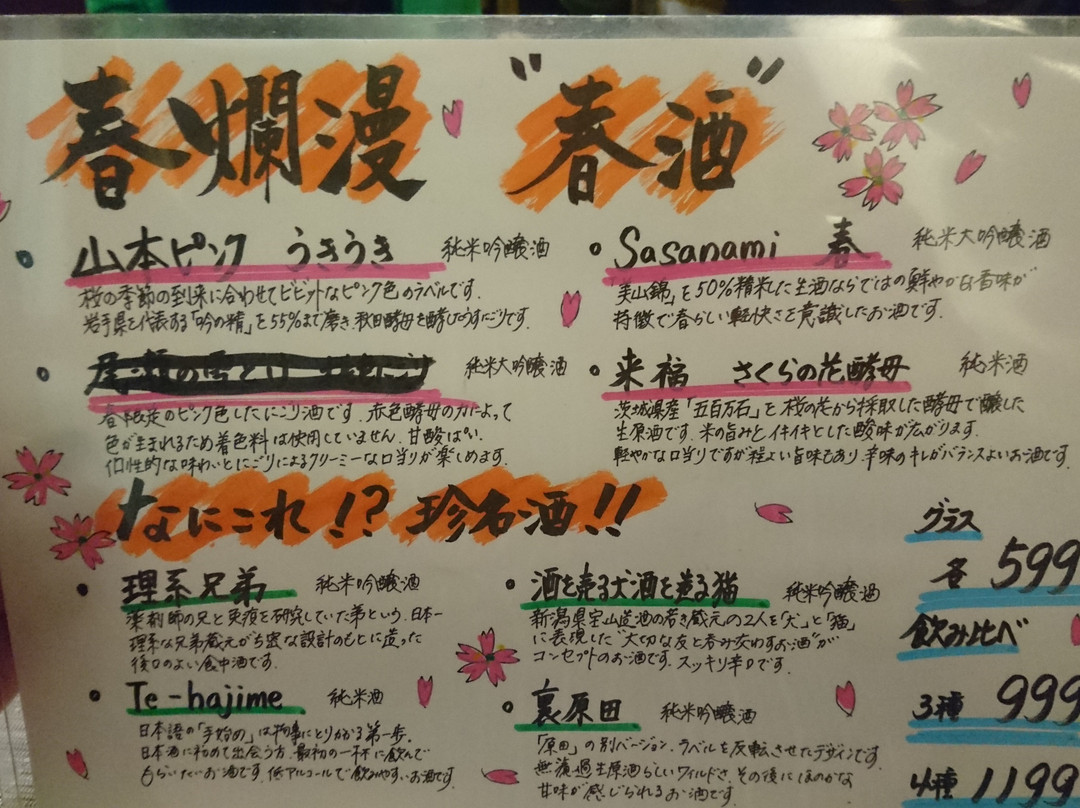 春爛漫 "春酒"
山本ピンク うきうき 純米吟醸酒
桜の季節の到来に合わせてビビットなピンク色のラベルです。
岩手県を代表する「吟の精」を55%まで磨き、秋田酵母を酵したうすにごりです。
純米大吟醸酒
春限定のピンク色したにごり酒です。赤色酵母の力によって
色が生まれるため着色料は使用していません。甘酸ぱい、
個性的な味わいとにごりによるクリーミーな口当りが楽しめます。
Sasanami 春 純米大吟醸酒
「美山錦」を50%精米した生酒ならではの鮮やかな香味が
特徴で春らしい軽快さを意識したお酒です。
来福 さくらの花酵母 純米酒
茨城県産「五百万石」と桜の花から採取した酵母で醸した
生原酒です。米の旨みとイキイキとした酸味が広がります。
軽やかな口当りですが程よい旨味もあり、辛味のキレがバランスよいお酒です。
なにこれ!? 珍名酒!!
理系兄弟 純米吟醸酒
薬剤師の兄と免疫を研究していた弟という、日本一
理系な兄弟蔵元がち密な設計のもとに造った
後口のよい食中酒です。
Te-hajime 純米酒
日本語の「手始め」は物事にとりかかる第一歩。
日本酒に初めて出会う方、最初の一杯に飲んで
もらいたいお酒です。低アルコールで飲みやすいお酒です。
酒を売る犬酒を造る猫 純米吟醸酒
新潟県宝山造酒の若き蔵元の2人を「犬」と「猫」
に表現した"大切な友と呑み交わすお酒"が
コンセプトのお酒です。スッキリ辛口です。
裏原田 純米吟醸酒
「原田」の別バージョン。ラベルを反転させたデザインです。
無濾過生原酒らしいワイルドさ、その後にほのかな
甘味が感じられるお酒です。
グラス
各 599
飲み比べ
3種 999
4種 1199